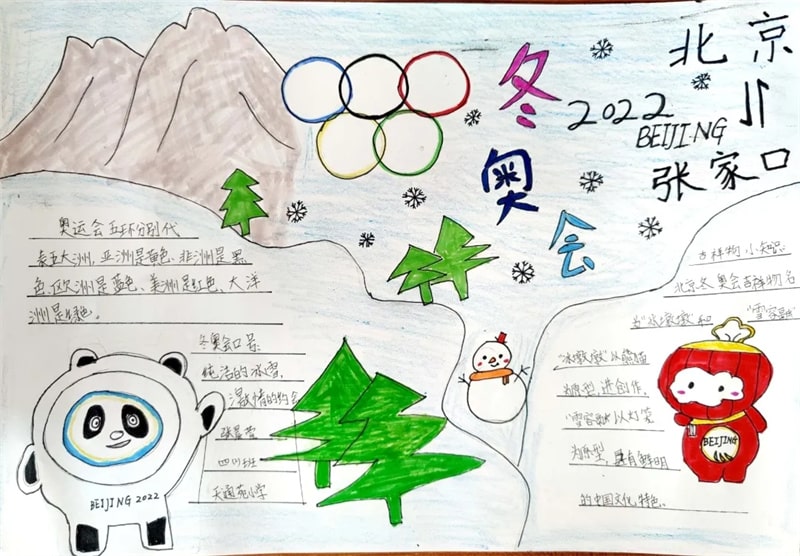 冬
奥
会
北京
2022
BEIJING
张家口
奥运会五环分别代
表五大洲,亚洲是黄色、非洲是黑
色、欧洲是蓝色、美洲是红色、大洋
洲是绿色。
冬奥会口号:
纯洁的冰雪,
激情的约会
四川班
天通苑小学
BEIJING 2022
吉祥物小知识
北京冬奥会吉祥物名
为"冰墩墩"和"雪容融"
"冰墩墩"以熊猫
为原型,进创作,
"雪容融"以灯笼
为原型,具有鲜明
的中国文化特色。
BEIJING